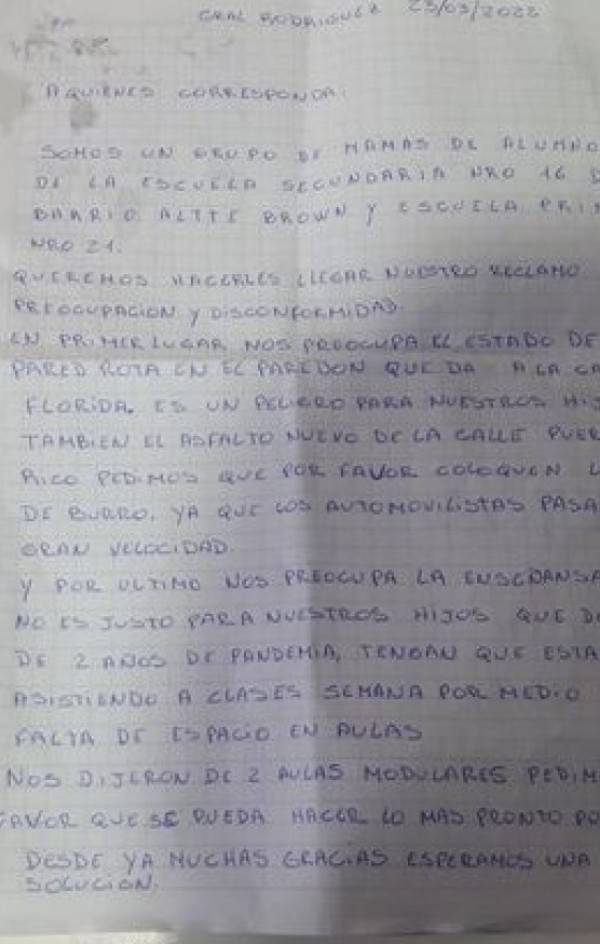 GRAL RODRIGUEZ 23/03/2022
A QUIENES CORRESPONDA:
SOMOS UN GRUPO DE MAMAS DE ALUMNO
DE LA ESCUELA SECUNDARIA NRO 16 D
BARRIO ALTTE BROWN Y ESCUELA PRI
NRO 21.
QUEREMOS HACERLES LLEGAR NUESTRO RECLAMO
PREOCUPACION Y DISCONFORMIDAD.
EN PRIMER LUGAR NOS PREOCUPA EL ESTADO DE
PARED ROTA EN EL PAREDON QUE DA A LA CA
FLORIDA. ES UN PELIGRO PARA NUESTROS HIJ
TAMBIEN EL ASFALTO NUEVO DE LA CALLE PUER
RICO PEDIMOS QUE POR FAVOR COLOQUEN L
DE BURRO, YA QUE LOS AUTOMOVILISTAS PASA
GRAN VELOCIDAD.
Y POR ULTIMO NOS PREOCUPA LA ENSEÑANSA
NO ES JUSTO PARA NUESTROS HIJOS QUE D
DE 2 AÑOS DE PANDEMIA, TENGAN QUE ESTA
ASISTIENDO A CLASES SEMANA POR MEDIO
FALTA DE ESPACIO EN AULAS
NOS DIJERON DE 2 AULAS MODULARES PEDIM
FAVOR QUE SE PUEDA HACER LO MAS PRONTO PO
DESDE YA MUCHAS GRACIAS ESPERAMOS UNA
SOLUCION.